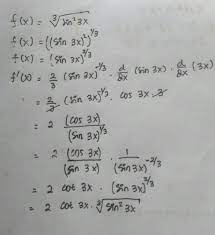 f(x) = ∛(sin² 3x)
f(x) = ((sin 3x)²)^(1/3)
f(x) = (sin 3x)^(2/3)
f'(x) = 2/3 (sin 3x)^(-1/3) · d/dx (sin 3x) · d/dx (3x)
= 2/3 (sin 3x)^(-1/3) · cos 3x · 3
= 2 (cos 3x)/(sin 3x)^(1/3)
= 2 (cos 3x)/(sin 3x) · 1/(sin 3x)^(-2/3)
= 2 cot 3x · (sin 3x)^(2/3)
= 2 cot 3x · ∛(sin² 3x)